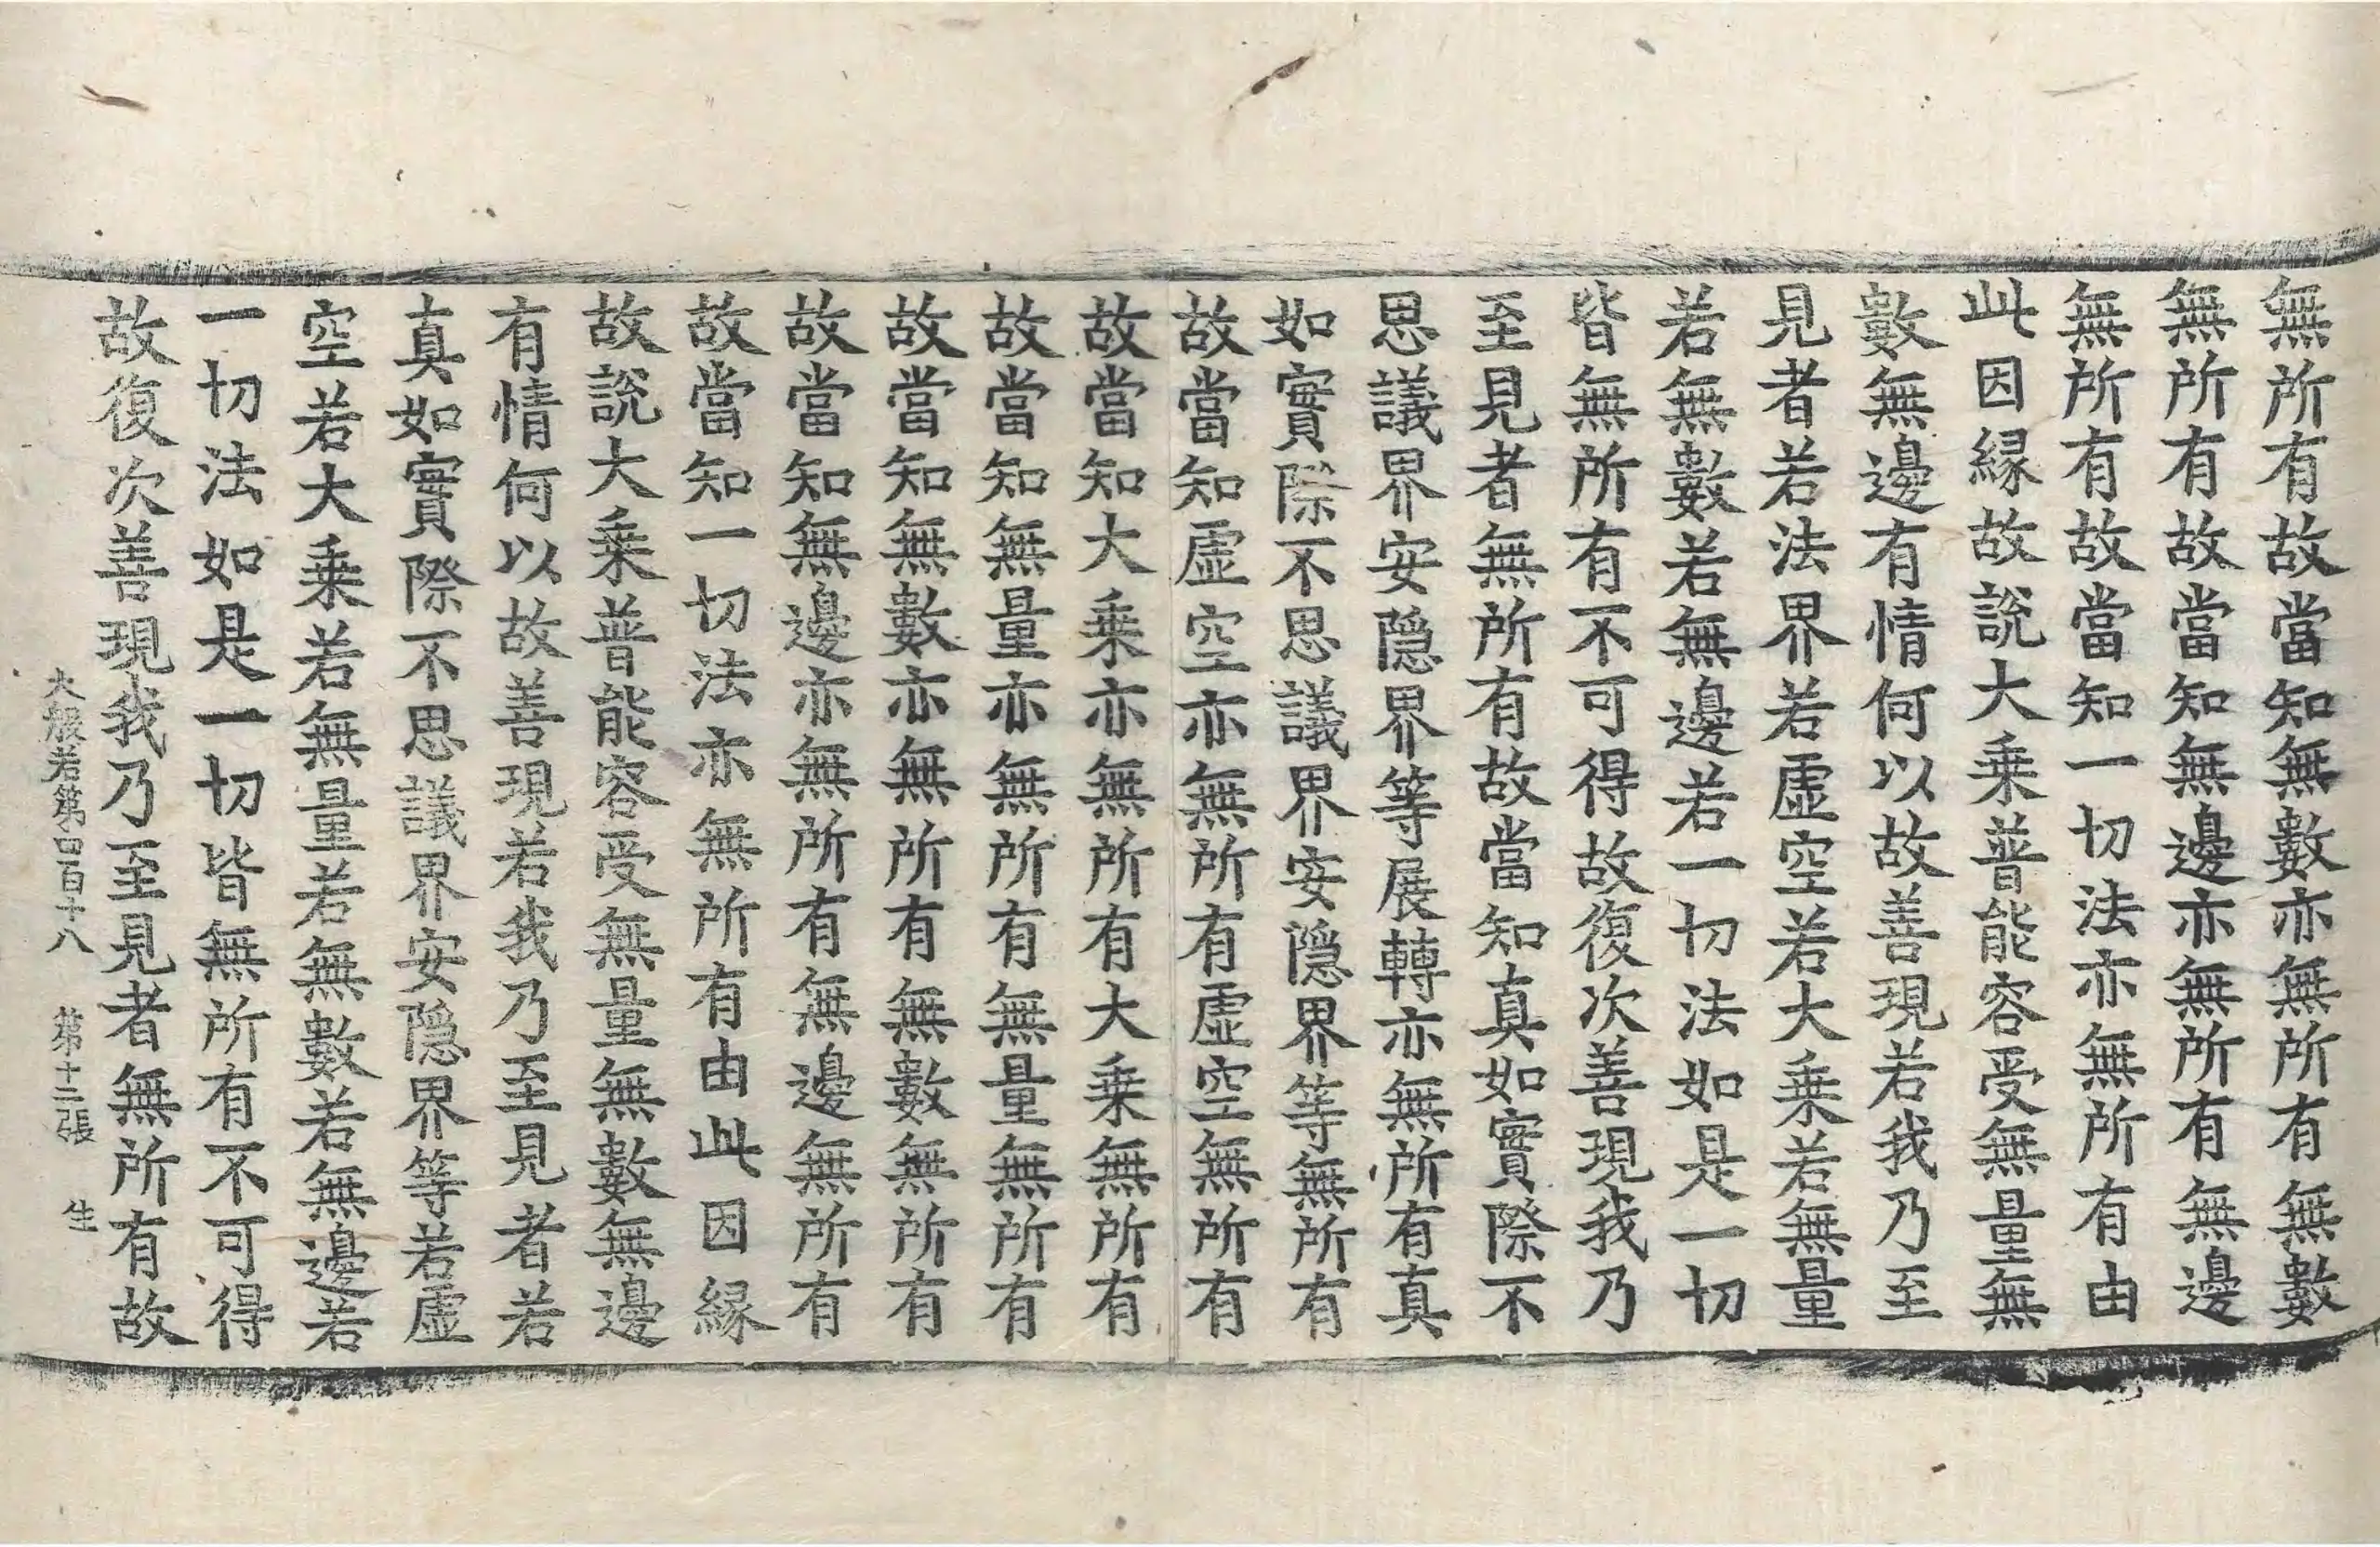 無所有故當知無數亦無所有無數
無所有故當知無邊亦無所有無邊
無所有故當知一切法亦無所有由
此因縁故說大乗普能容受無量無
數無邊有情何以故善現若我乃至
見者若法界若虛空若大乗若無量
若無數若無邊若一切法如是一切
皆無所有不可得故復次善現我乃
至見者無所有故當知真如實際不
思議界安隱界等展轉亦無所有真
如實際不思議界安隱界等無所有
故當知虛空亦無所有虛空無所有
故當知大乗亦無所有大乗無所有
故當知無量亦無所有無量無所有
故當知無數亦無所有無數無所有
故當知無邊亦無所有無邊無所有
故當知一切法亦無所有由此因縁
故說大乗普能容受無量無數無邊
有情何以故善現若我乃至見者若
真如實際不思議界安隱界等若虛
空若大乗若無量若無數若無邊若
一切法如是一切皆無所有不可得
故復次善現我乃至見者無所有故
大般若第四百十八 第十二張 生